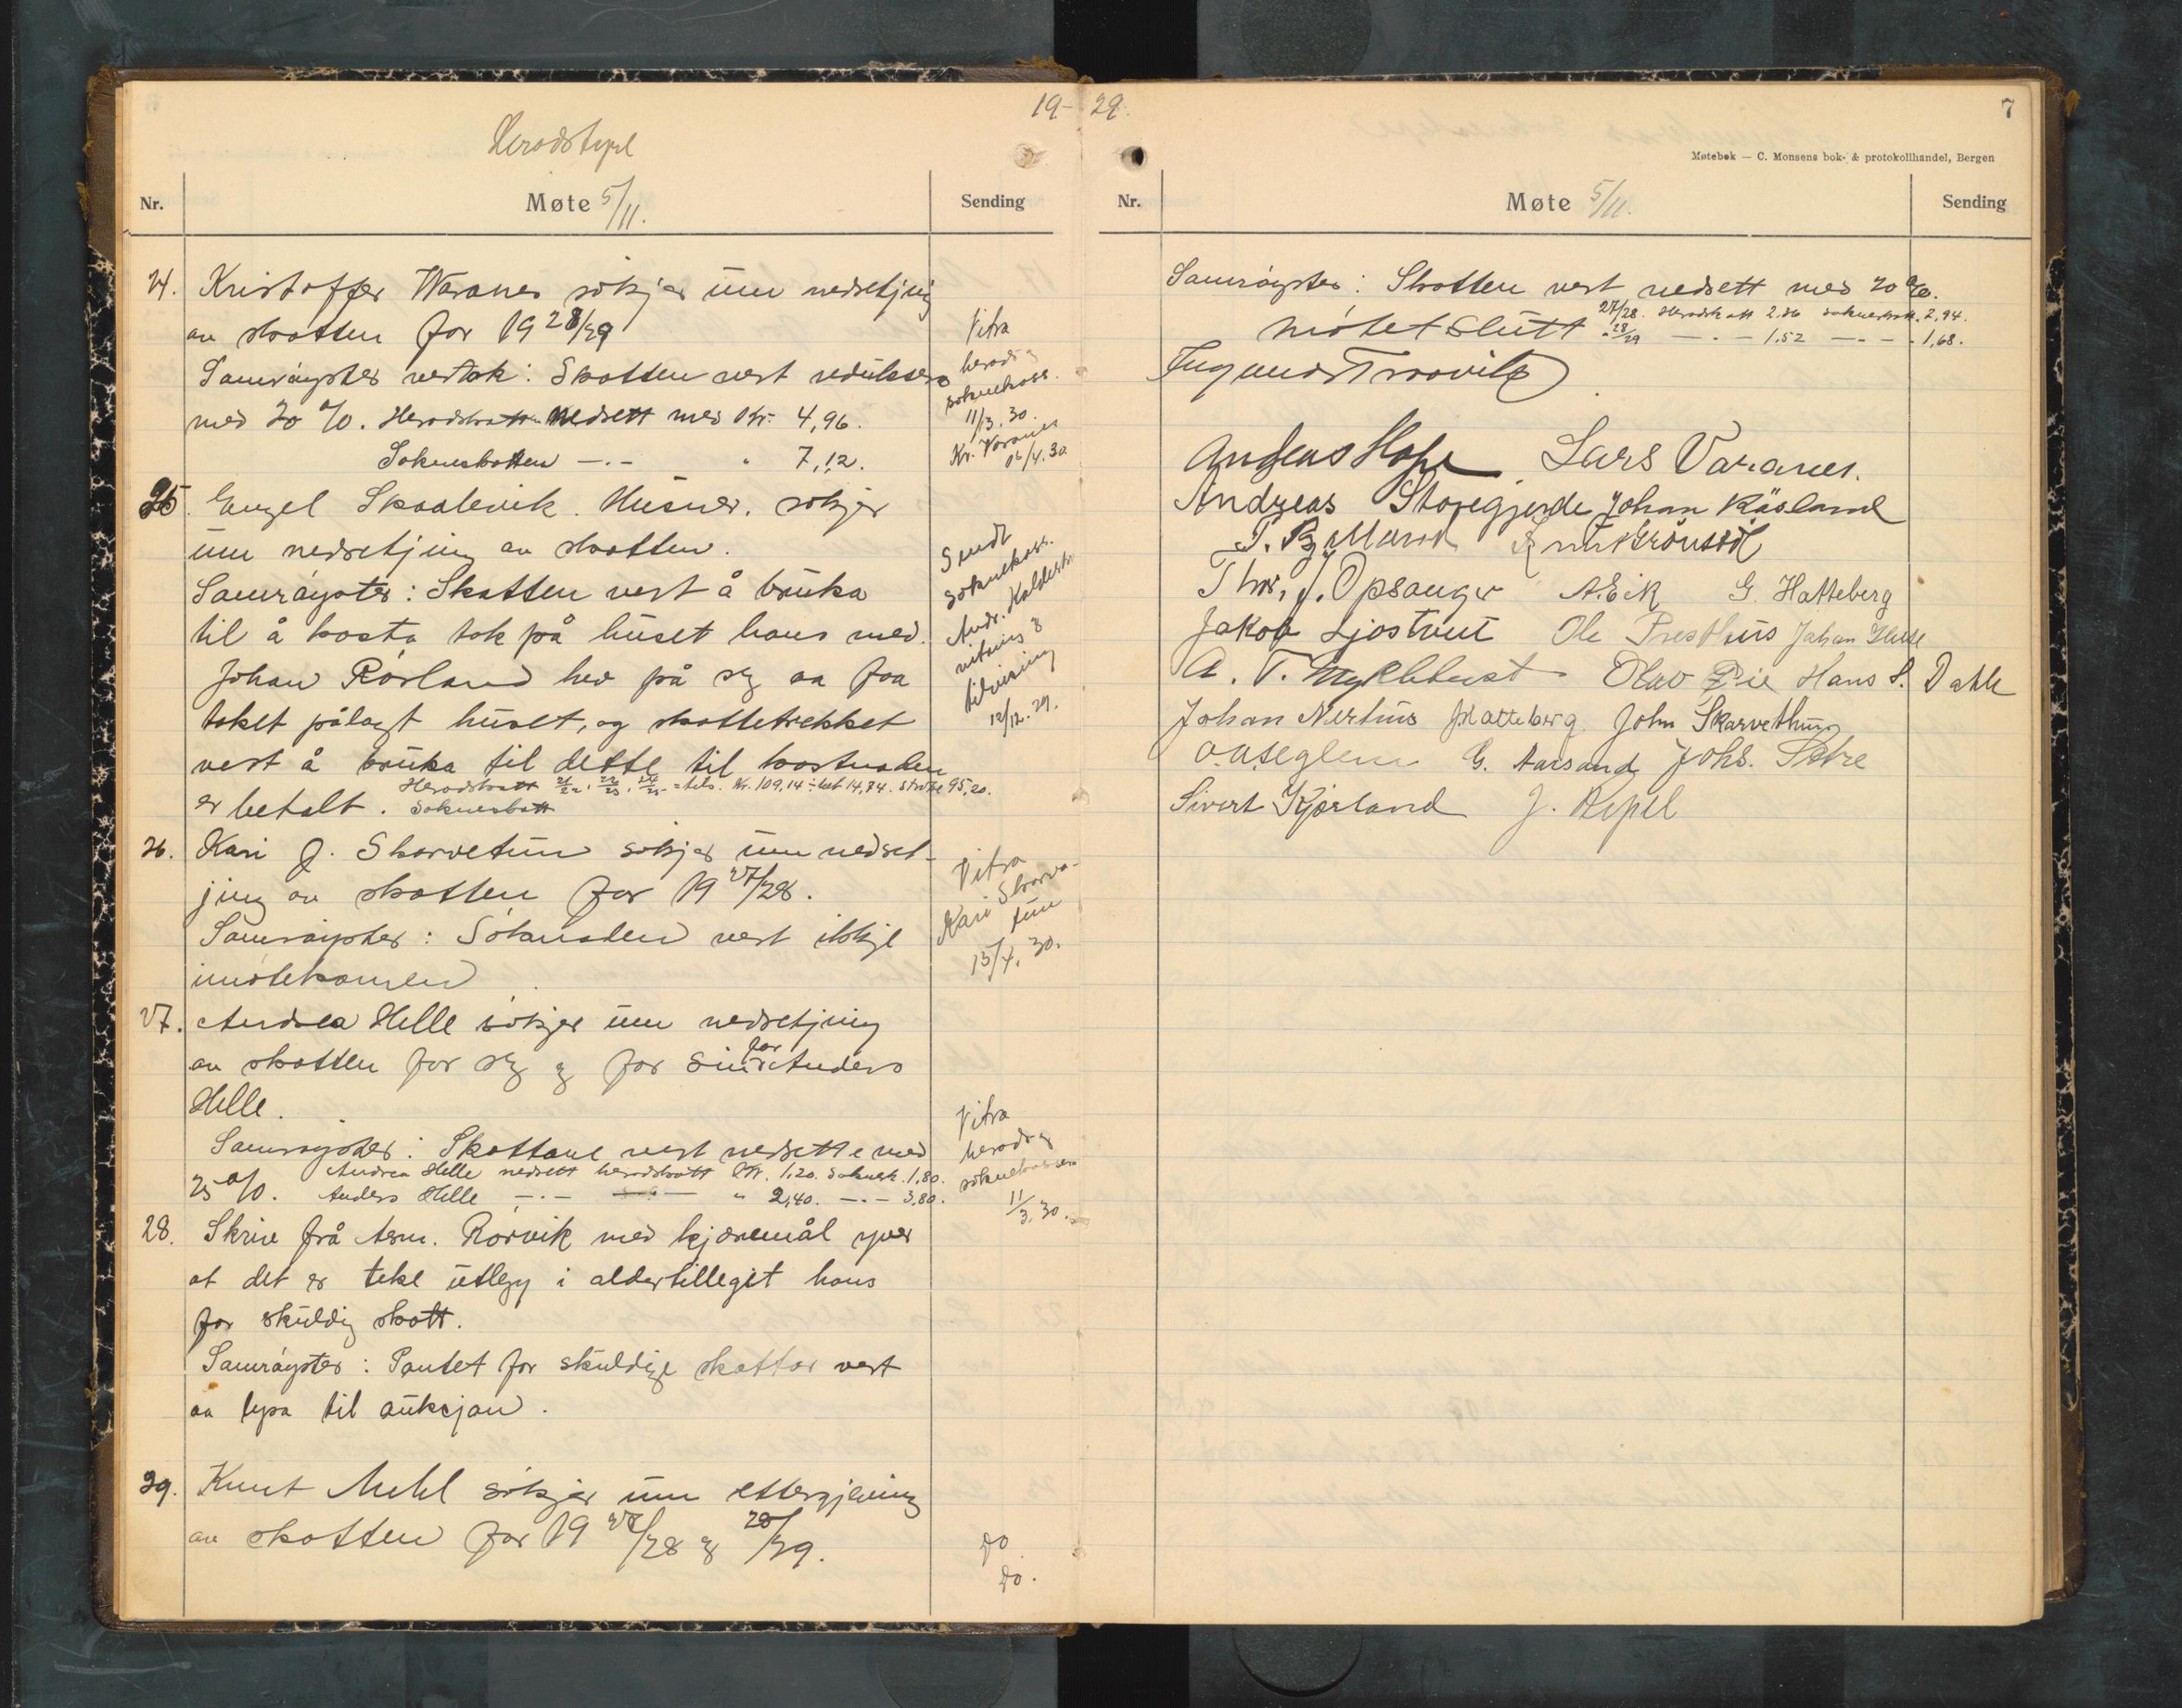 19- 29.
7
Heradstyre
Møtebok — C. Monsens bok- & protokollhandel, Bergen
Nr. Møte 5/11. Sending
24. Kristoffer Waranes søkjer um nedsetjing
av skatten for 19 28/29
Samrøystes vertok: Skatten vert redusert
med 20 %. Heradskatten Nedsett med Kr. 4,96.
Soknesskatten —.— " 7,12.
Vitra
herads og
soknekass.
11/3.30.
Kr. Varanes
/4.30
25. Engel Skaalevik. Husnes. søkjer
um nedsetjing av skatten.
Samrøystes: Skatten vert å bruka
til å kosta tak på huset hans med.
Johan Røsland hev på seg aa faa
taket pålagt huset, og skattetrekket
vert å bruka til dette til kostnaden
Heradskatt 21/22, 22/23, 24/25 = tils. Kr. 109,14 ÷ bet 14,74. Stroke 95,20.
er betalt. Soknesskatt
Sendt
soknekass.
Andr.
vitnins &
tilvising
12/12.29.
26. Kari J. Skarvetun søkjer um nedset-
jing av skatten for 19 27/28.
Samrøystes: Søknaden vert ikkje
imøtekomen
Vitra
Kari Skarva-
tun
15/4.30.
27. Andrea Helle søkjer um nedsetjing
av skatten for seg og for sin far Anders
Helle.
Samrøystes: Skattane vert nedsette med
Andrea Helle nedsett heradskatt Kr. 1,20. Soknesk. 1,80.
25 %. Anders Helle —.— —.— " 2,40. —.— 3,80.
Vitra
herads og
soknekassen
11/3.30.
28. Skriv frå Arm. Rørvik med kjæremål yver
at det er teke utlegg i alderstilleget hans
for skuldig skatt.
Samrøystes: Pantet for skuldige skattar vert
aa lysa til auksjon.
29. Knut Mehl søkjer um ettergjeving
av skatten for 19 27/28 og 28/29.
do
do.
Nr. Møte 5/11. Sending
Samrøystes: Skatten vert nedsett med 20 %.
27/28. Heradskatt 2.36 soknesskatt. 2,94.
Møtet Slutt " 28/29 —.— 1.52 —.— 1,68.
Ingmund Traavik
Andreas Hope Lars Varanes.
Andreas Storegjerde Johan Råsland
T. By Knut Grønstøl
Thor. J. Opsanger A. Eik G. Hatteberg
Jakob Ljostveit Ole Presthus Johan Huse
A. T. Myklebust Olav Eie Hans S. Dahle
Johan Nerhus J Hatteberg. John Skarvethun
O. Useglem G. Aarsand Johs. Sætre
Sivert Kjærland J. Repel